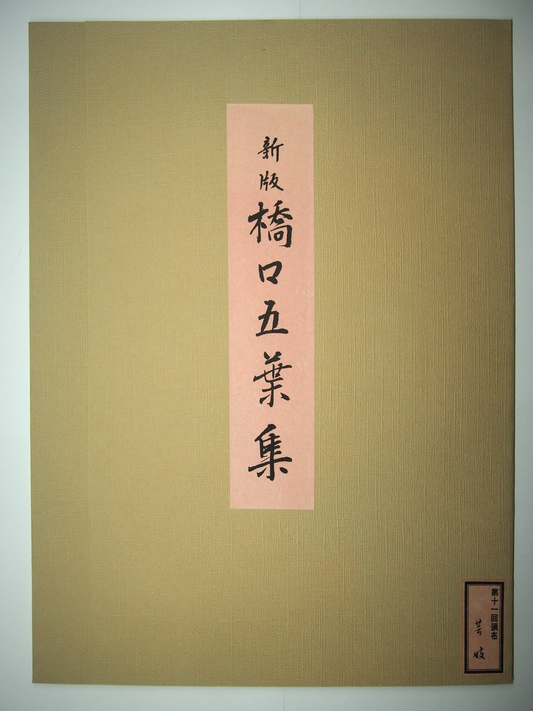 新版 橋口五葉集
第十一回頒布
芸妓